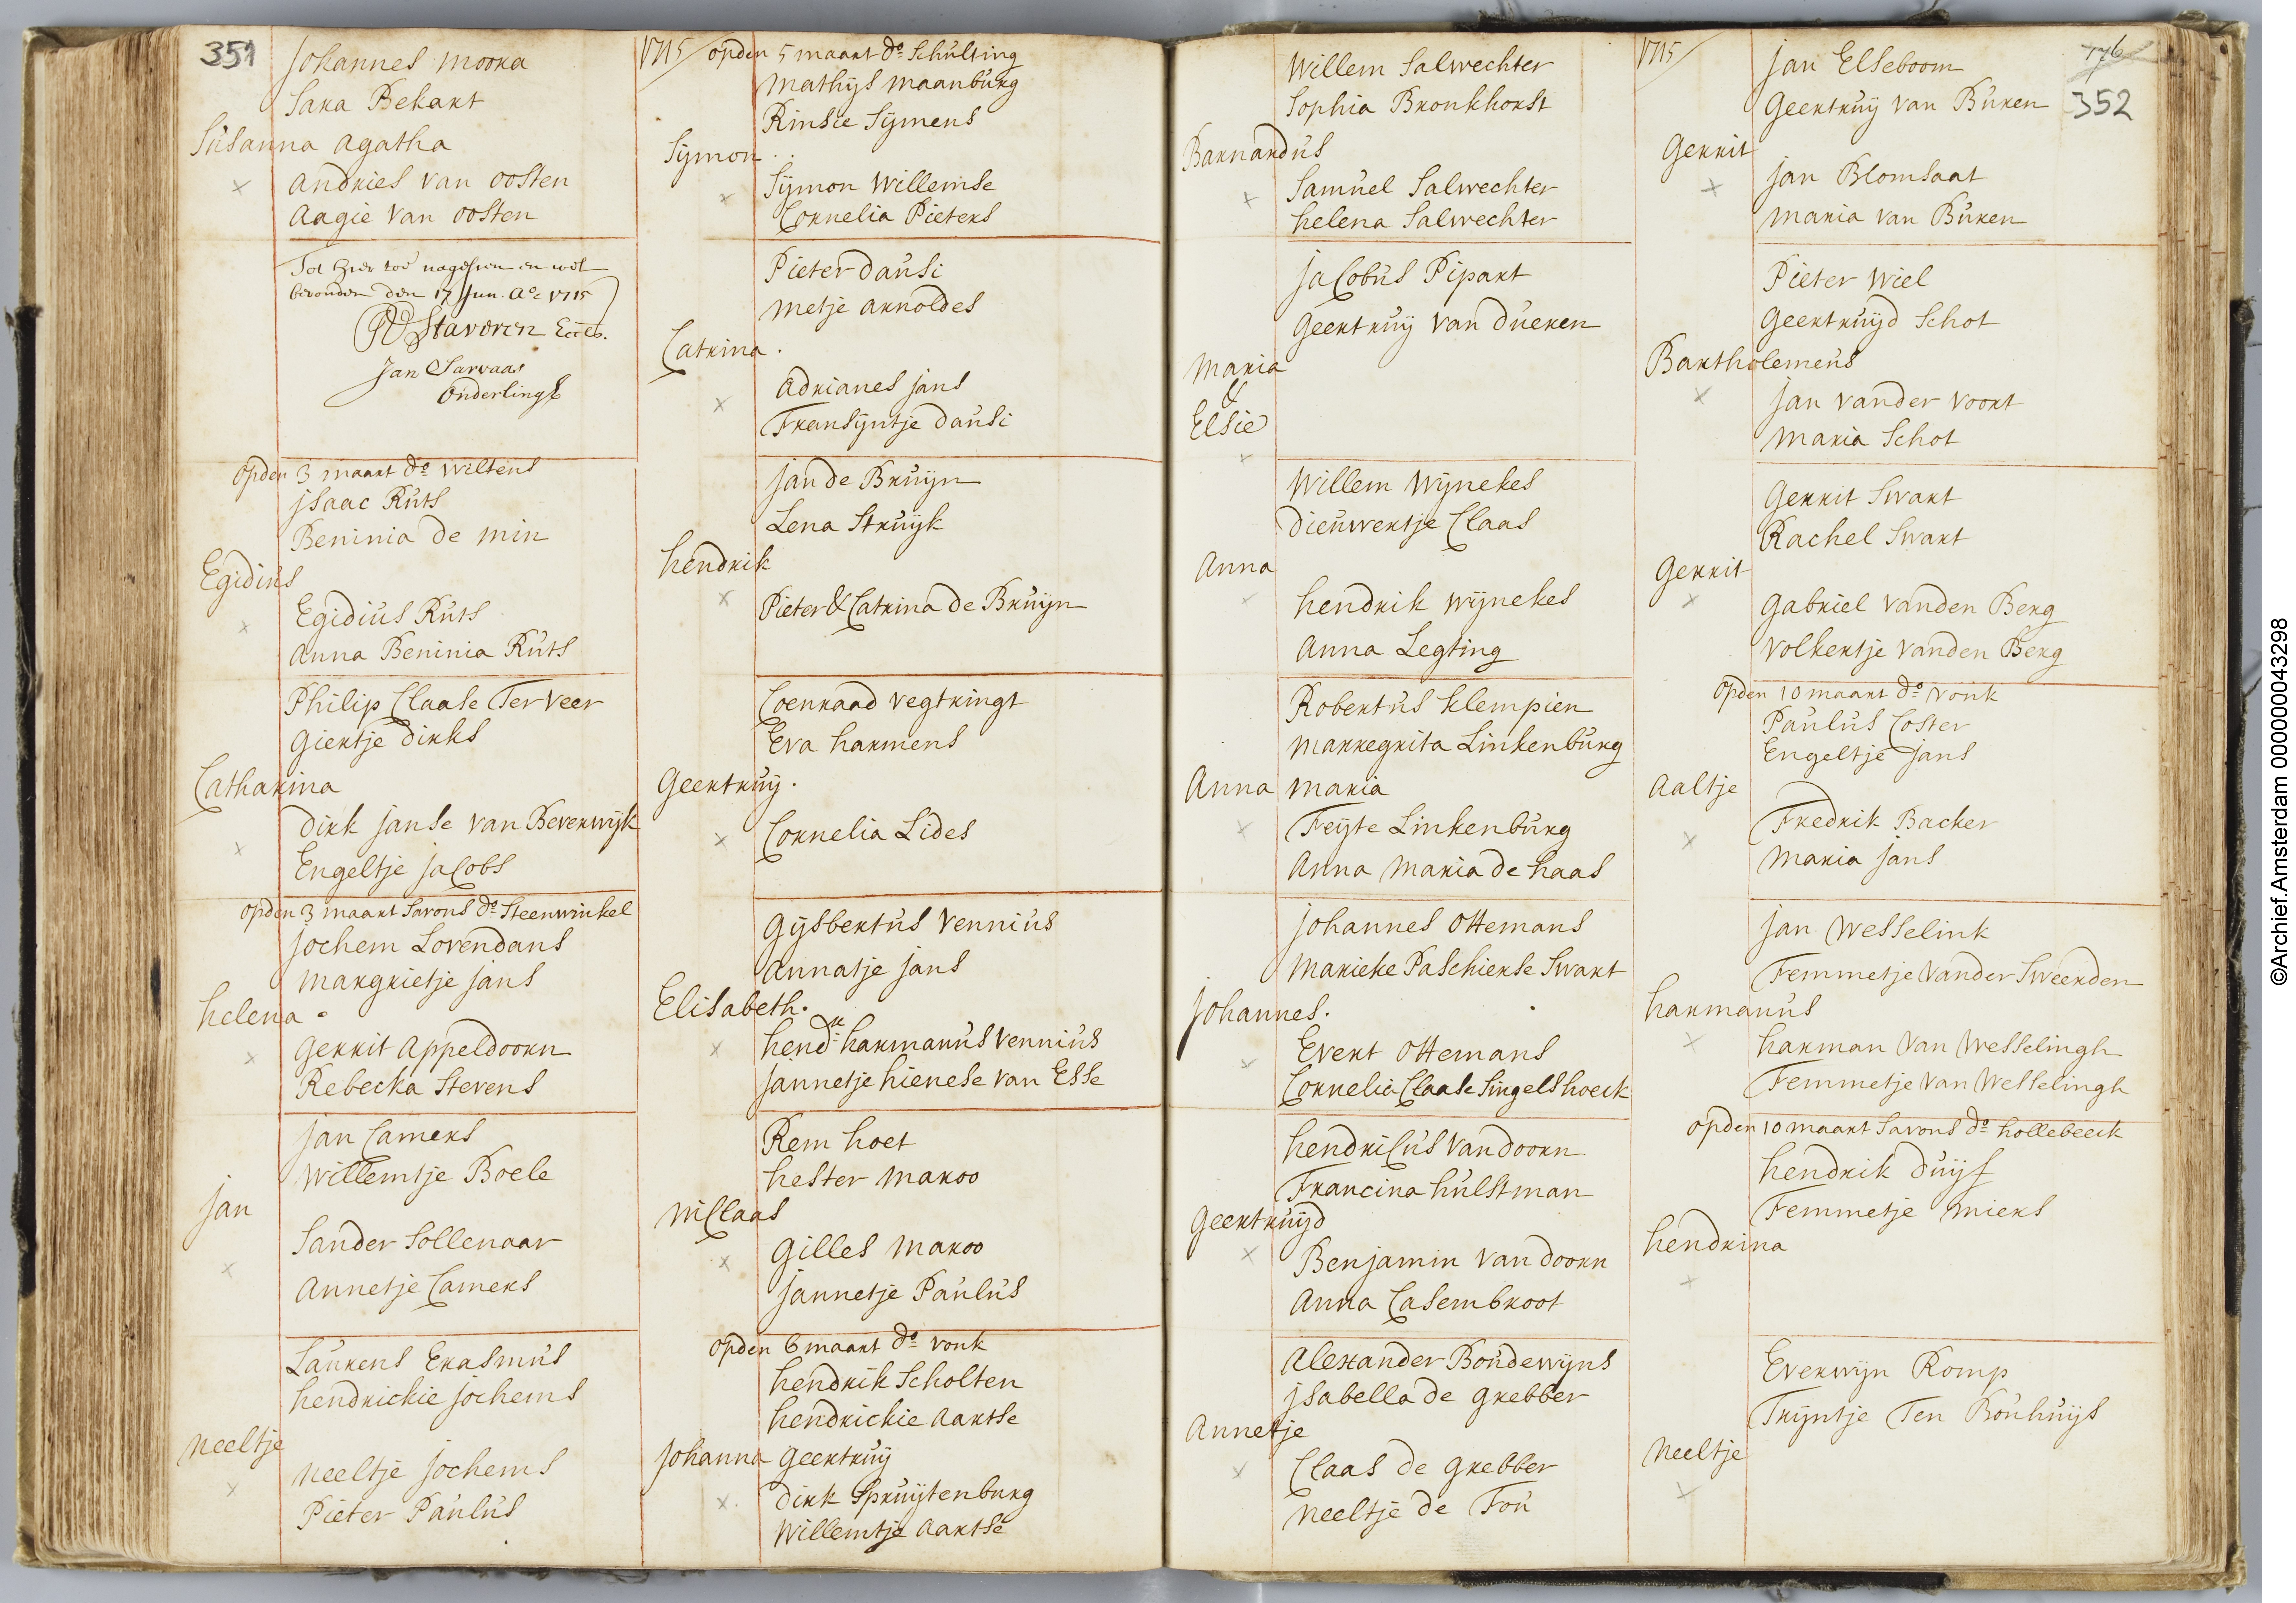 351
Johannes Moora
Sara Bekart
Susanna Agatha
Andries van Oosten
Aagie van Oosten
Tot hier toe nagesien en wel
bevonden den 17 Jun. Ao 1715
Stavoren Eccles.
Jan Sarvaas
Onderlingh
Opden 3 maart do Wiltens
Jsaac Ruts
Beninia de Min
Egidius
Egidius Ruts
Anna Beninia Ruts
Philip Claase Ter Veer
Giertje Dirks
Catharina
Dirk Janse van Beverwijk
Engeltje Jacobs
Opden 3 maart Savons do Steenwinkel
Jochem Lovendans
Margrietje Jans
Helena
Gerrit Appeldoorn
Rebecka Stevens
Jan Camers
Willemtje Boele
Jan
Sander Sollenaar
Annetje Camers
Laurens Erasmus
Hendrickie Jochems
Neeltje
Neeltje Jochems
Pieter Paulus
1715
Opden 5 maart do Schulting
Mathijs Maanburg
Rinsie Sijmens
Sijmon
Sijmon Willemse
Cornelia Pieters
Pieter Dausi
Metje Arnoldes
Catrina
Adrianes Jans
Fransijntje Dausi
Jan de Bruijn
Lena Struijk
Hendrik
Pieter & Catrina de Bruijn
Coenraad Vegtringt
Eva Harmens
Geertruij
Cornelia Lides
Gijsbertus Vennius
Annatje Jans
Elisabeth
Hendk Harmanus Vennius
Jannetje Hienese van Esse
Rem Hoet
Hester Maroo
Niclaas
Gilles Maroo
Jannetje Paulus
Opden 6 maart do Vonk
Hendrik Scholten
Hendrickie Aartse
Johanna Geertruij
Dirk Spruijtenburg
Willemtje Aartse
Willem Salwechter
Sophia Bronkhorst
Barnardus
Samuel Salwechter
Helena Salwechter
Jacobus Pipart
Geertruij van Dueren
Maria
&
Elsie
Willem Wijnekes
Dieuwertje Claas
Anna
Hendrik Wijnekes
Anna Legting
Robertus Klempien
Marregrita Linkenburg
Anna Maria
Feijte Linkenburg
Anna Maria de Haas
Johannes Ottemans
Marieke Paschierse Swart
Johannes.
Evert Ottemans
Cornelia Claase Singelshoeck
Hendricus van Doorn
Francina Hulstman
Geertruijd
Benjamin van Doorn
Anna Casembroot
Alexander Boudewijns
Jsabella de Grebber
Annetje
Claas de Grebber
Neeltje de Fou
1715
176
352
Jan Elseboom
Geertruij van Buren
Gerrit
Jan Blomsaat
Maria van Buren
Pieter Wiel
Geertruijd Schot
Bartholemeus
Jan vander Voort
Maria Schot
Gerrit Swart
Rachel Swart
Gerrit
Gabriel vanden Berg
Volkertje vanden Berg
Opden 10 maart do Vonk
Paulus Coster
Engeltje Jans
Aaltje
Fredrik Backer
Maria Jans
Jan Wesselink
Femmetje vander Sweerden
Harmanus
Harman van Wesselingh
Femmetje van Wesselingh
Opden 10 maart Savons do Hollebeeck
Hendrik Duijf
Femmetje Miers
Hendrina
Everwijn Romp
Trijntje Ten Bouhuijs
Neeltje
©Archief.Amsterdam 000000043298